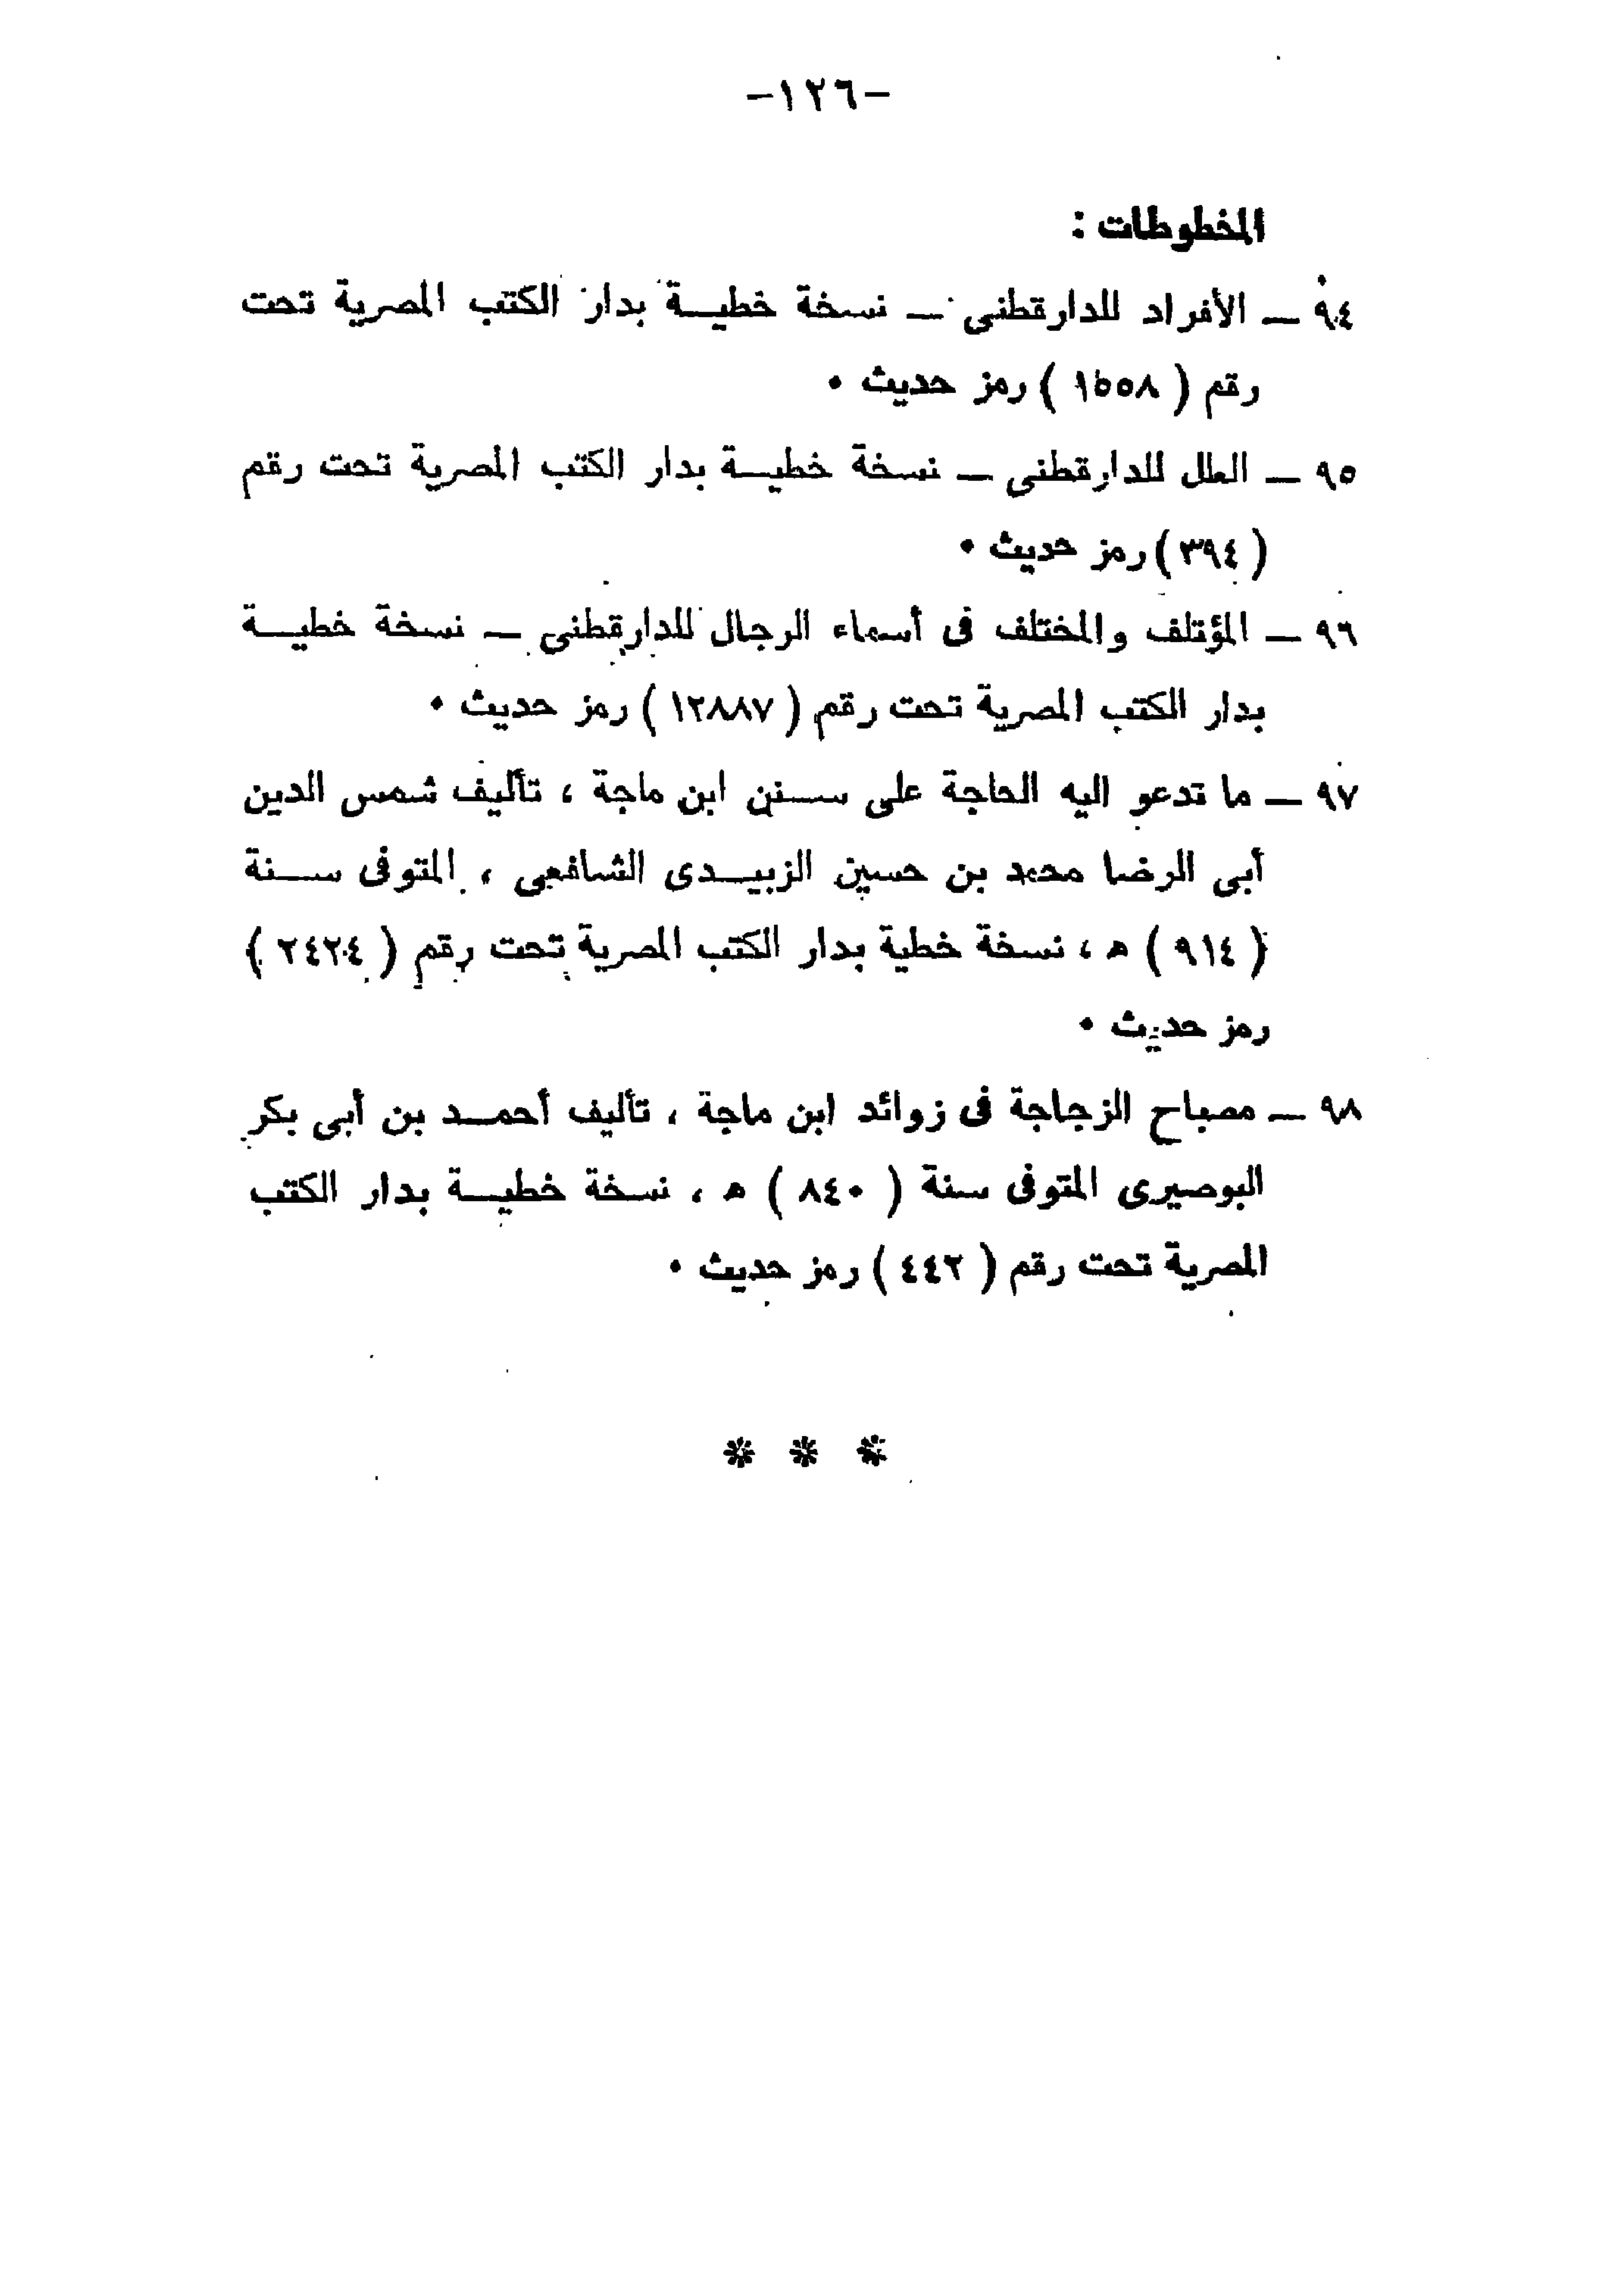 -١٢٦-
المخطوطات :
٩٤ — الأفراد للدارقطنى — نسخة خطيــة بدار الكتب المصرية تحت
رقم ( ١٥٥٨ ) رمز حديث .
٩٥ — العلل للدارقطنى — نسخة خطيــة بدار الكتب المصرية تحت رقم
( ٣٩٤ ) رمز حديث .
٩٦ — المؤتلف والمختلف فى أسماء الرجال للدارقطنى — نسخة خطيــة
بدار الكتب المصرية تحت رقم ( ١٢٨٨٧ ) رمز حديث .
٩٧ — ما تدعو اليه الحاجة على ســنن ابن ماجة ، تأليف شمس الدين
أبى الرضا محمد بن حسين الزبيــدى الشافعى ، المتوفى ســنة
( ٩١٤ ) ه ، نسخة خطية بدار الكتب المصرية تحت رقم ( ٢٤٢٤ )
رمز حديث .
٩٨ — مصباح الزجاجة فى زوائد ابن ماجة ، تأليف أحمــد بن أبى بكر
البوصيرى المتوفى سنة ( ٨٤٠ ) ه ، نسخة خطيــة بدار الكتب
المصرية تحت رقم ( ٤٤٢ ) رمز حديث .
* * *